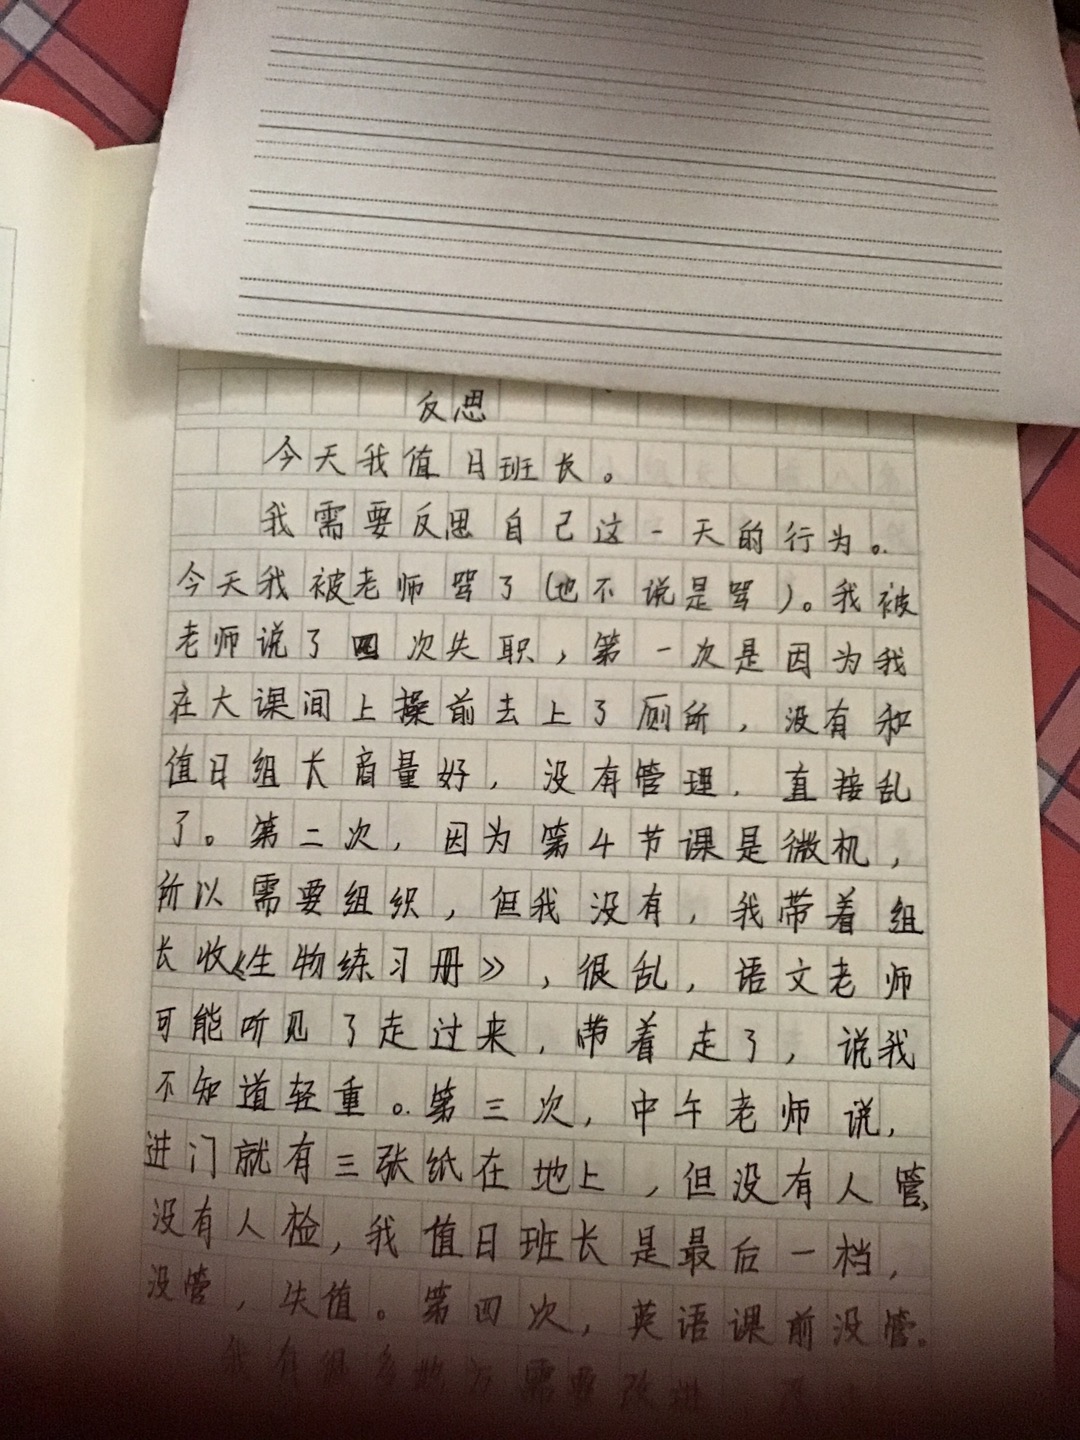 反思
今天我值日班长。
我需要反思自己这一天的行为。
今天我被老师骂了(也不说是骂)。我被
老师说了四次失职,第一次是因为我
在大课间上操前去上了厕所,没有和
值日组长商量好,没有管理.直接乱
了。第二次,因为第4节课是微机,
所以需要组织,但我没有,我带着组
长收《生物练习册》,很乱,语文老师
可能听见了走过来,带着走了,说我
不知道轻重。第三次,中午老师说,
进门就有三张纸在地上,但没有人管,
没有人检,我值日班长是最后一档,
没管,失值。第四次,英语课前没管。
我有很多地方需要改进